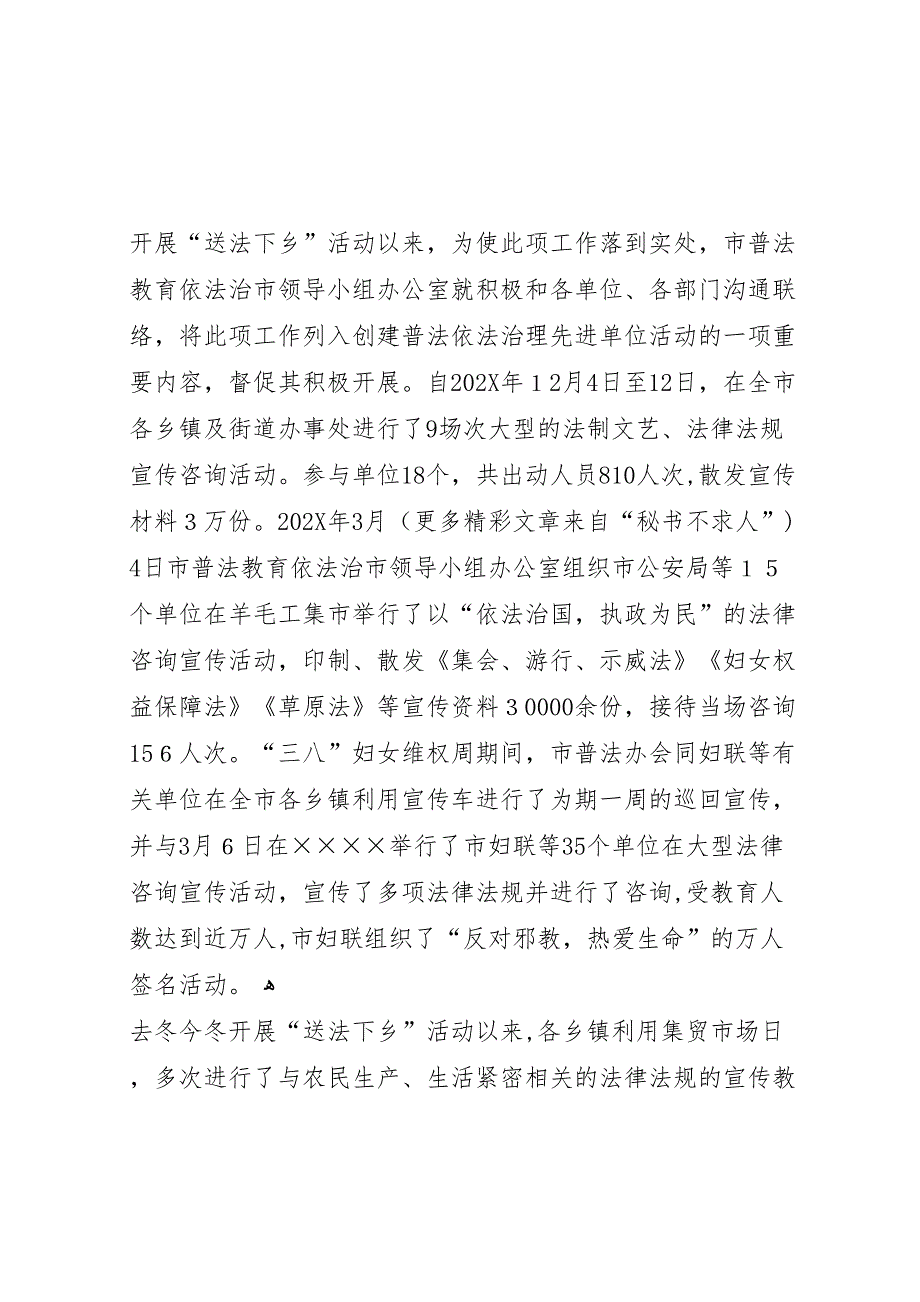 开展“送法下乡”活动以来，为使此项工作落到实处，市普法
教育依法治市领导小组办公室就积极和各单位、各部门沟通联
络，将此项工作列入创建普法依法治理先进单位活动的一项重
要内容，督促其积极开展。自202X年１2月4日至12日，在全市
各乡镇及街道办事处进行了9场次大型的法制文艺、法律法规
宣传咨询活动。参与单位18个，共出动人员810人次,散发宣传
材料３万份。202X年3月（更多精彩文章来自“秘书不求人”)
4日市普法教育依法治市领导小组办公室组织市公安局等１５
个单位在羊毛工集市举行了以“依法治国，执政为民”的法律
咨询宣传活动，印制、散发《集会、游行、示威法》《妇女权
益保障法》《草原法》等宣传资料３0000余份，接待当场咨询
15６人次。“三八”妇女维权周期间，市普法办会同妇联等有
关单位在全市各乡镇利用宣传车进行了为期一周的巡回宣传，
并与3月６日在××××举行了市妇联等35个单位在大型法律
咨询宣传活动，宣传了多项法律法规并进行了咨询,受教育人
数达到近万人,市妇联组织了“反对邪教，热爱生命”的万人
签名活动。 ﻫ
去冬今冬开展“送法下乡”活动以来,各乡镇利用集贸市场日
，多次进行了与农民生产、生活紧密相关的法律法规的宣传教